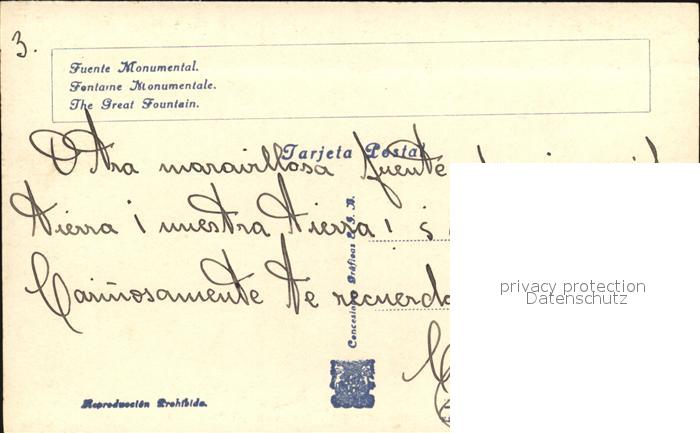 3.
Fuente Monumental.
Fontaine Monumentale.
The Great Fountain.
Tarjeta Postal
Otra maravillosa fuente
tierra i nuestra tierra!
Cariñosamente te recuerda
Concesion Gráficas E. I. B.
privacy protection
Datenschutz
Reproducción Prohibida.